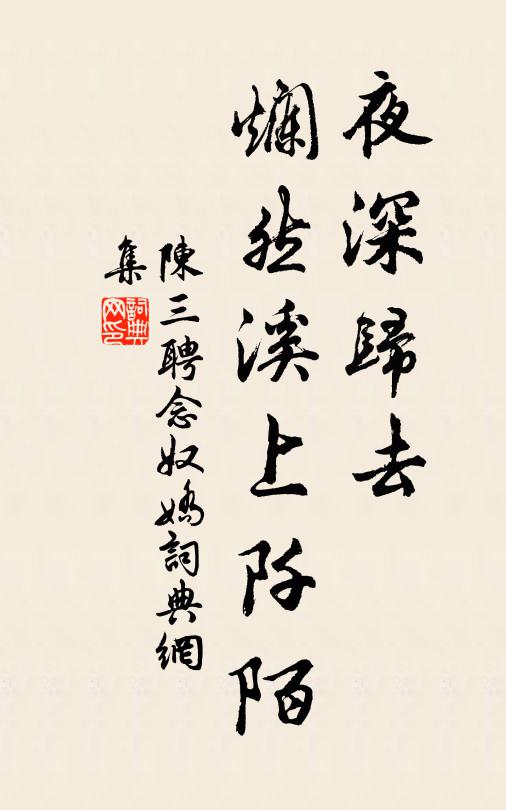 夜深歸去
爛然溪上阡陌
陳三聘念奴嬌詞典網
集
詞典
网印